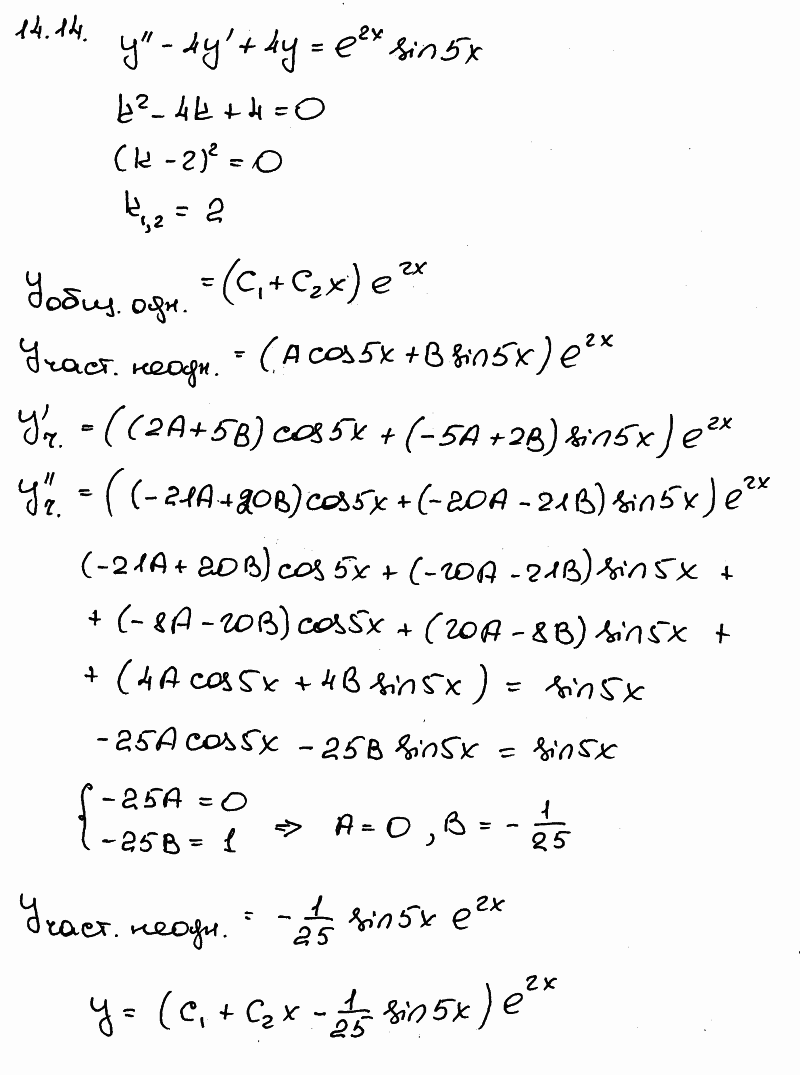 14.14. y'' - 4y' + 4y = e^{2x} sin5x
k² - 4k + 4 = 0
(k - 2)² = 0
k₁,₂ = 2
y общ. одн. = (C₁ + C₂x) e^{2x}
y част. неодн. = (A cos5x + B sin5x) e^{2x}
y'ч. = ((2A + 5B) cos5x + (-5A + 2B) sin5x) e^{2x}
y''ч. = ((-21A + 20B) cos5x + (-20A - 21B) sin5x) e^{2x}
(-21A + 20B) cos5x + (-20A - 21B) sin5x +
+ (-8A - 20B) cos5x + (20A - 8B) sin5x +
+ (4A cos5x + 4B sin5x) = sin5x
-25A cos5x - 25B sin5x = sin5x
{ -25A = 0
-25B = 1 ⇒ A = 0, B = - 1/25
y част. неодн. = - 1/25 sin5x e^{2x}
y = (C₁ + C₂x - 1/25 sin5x) e^{2x}